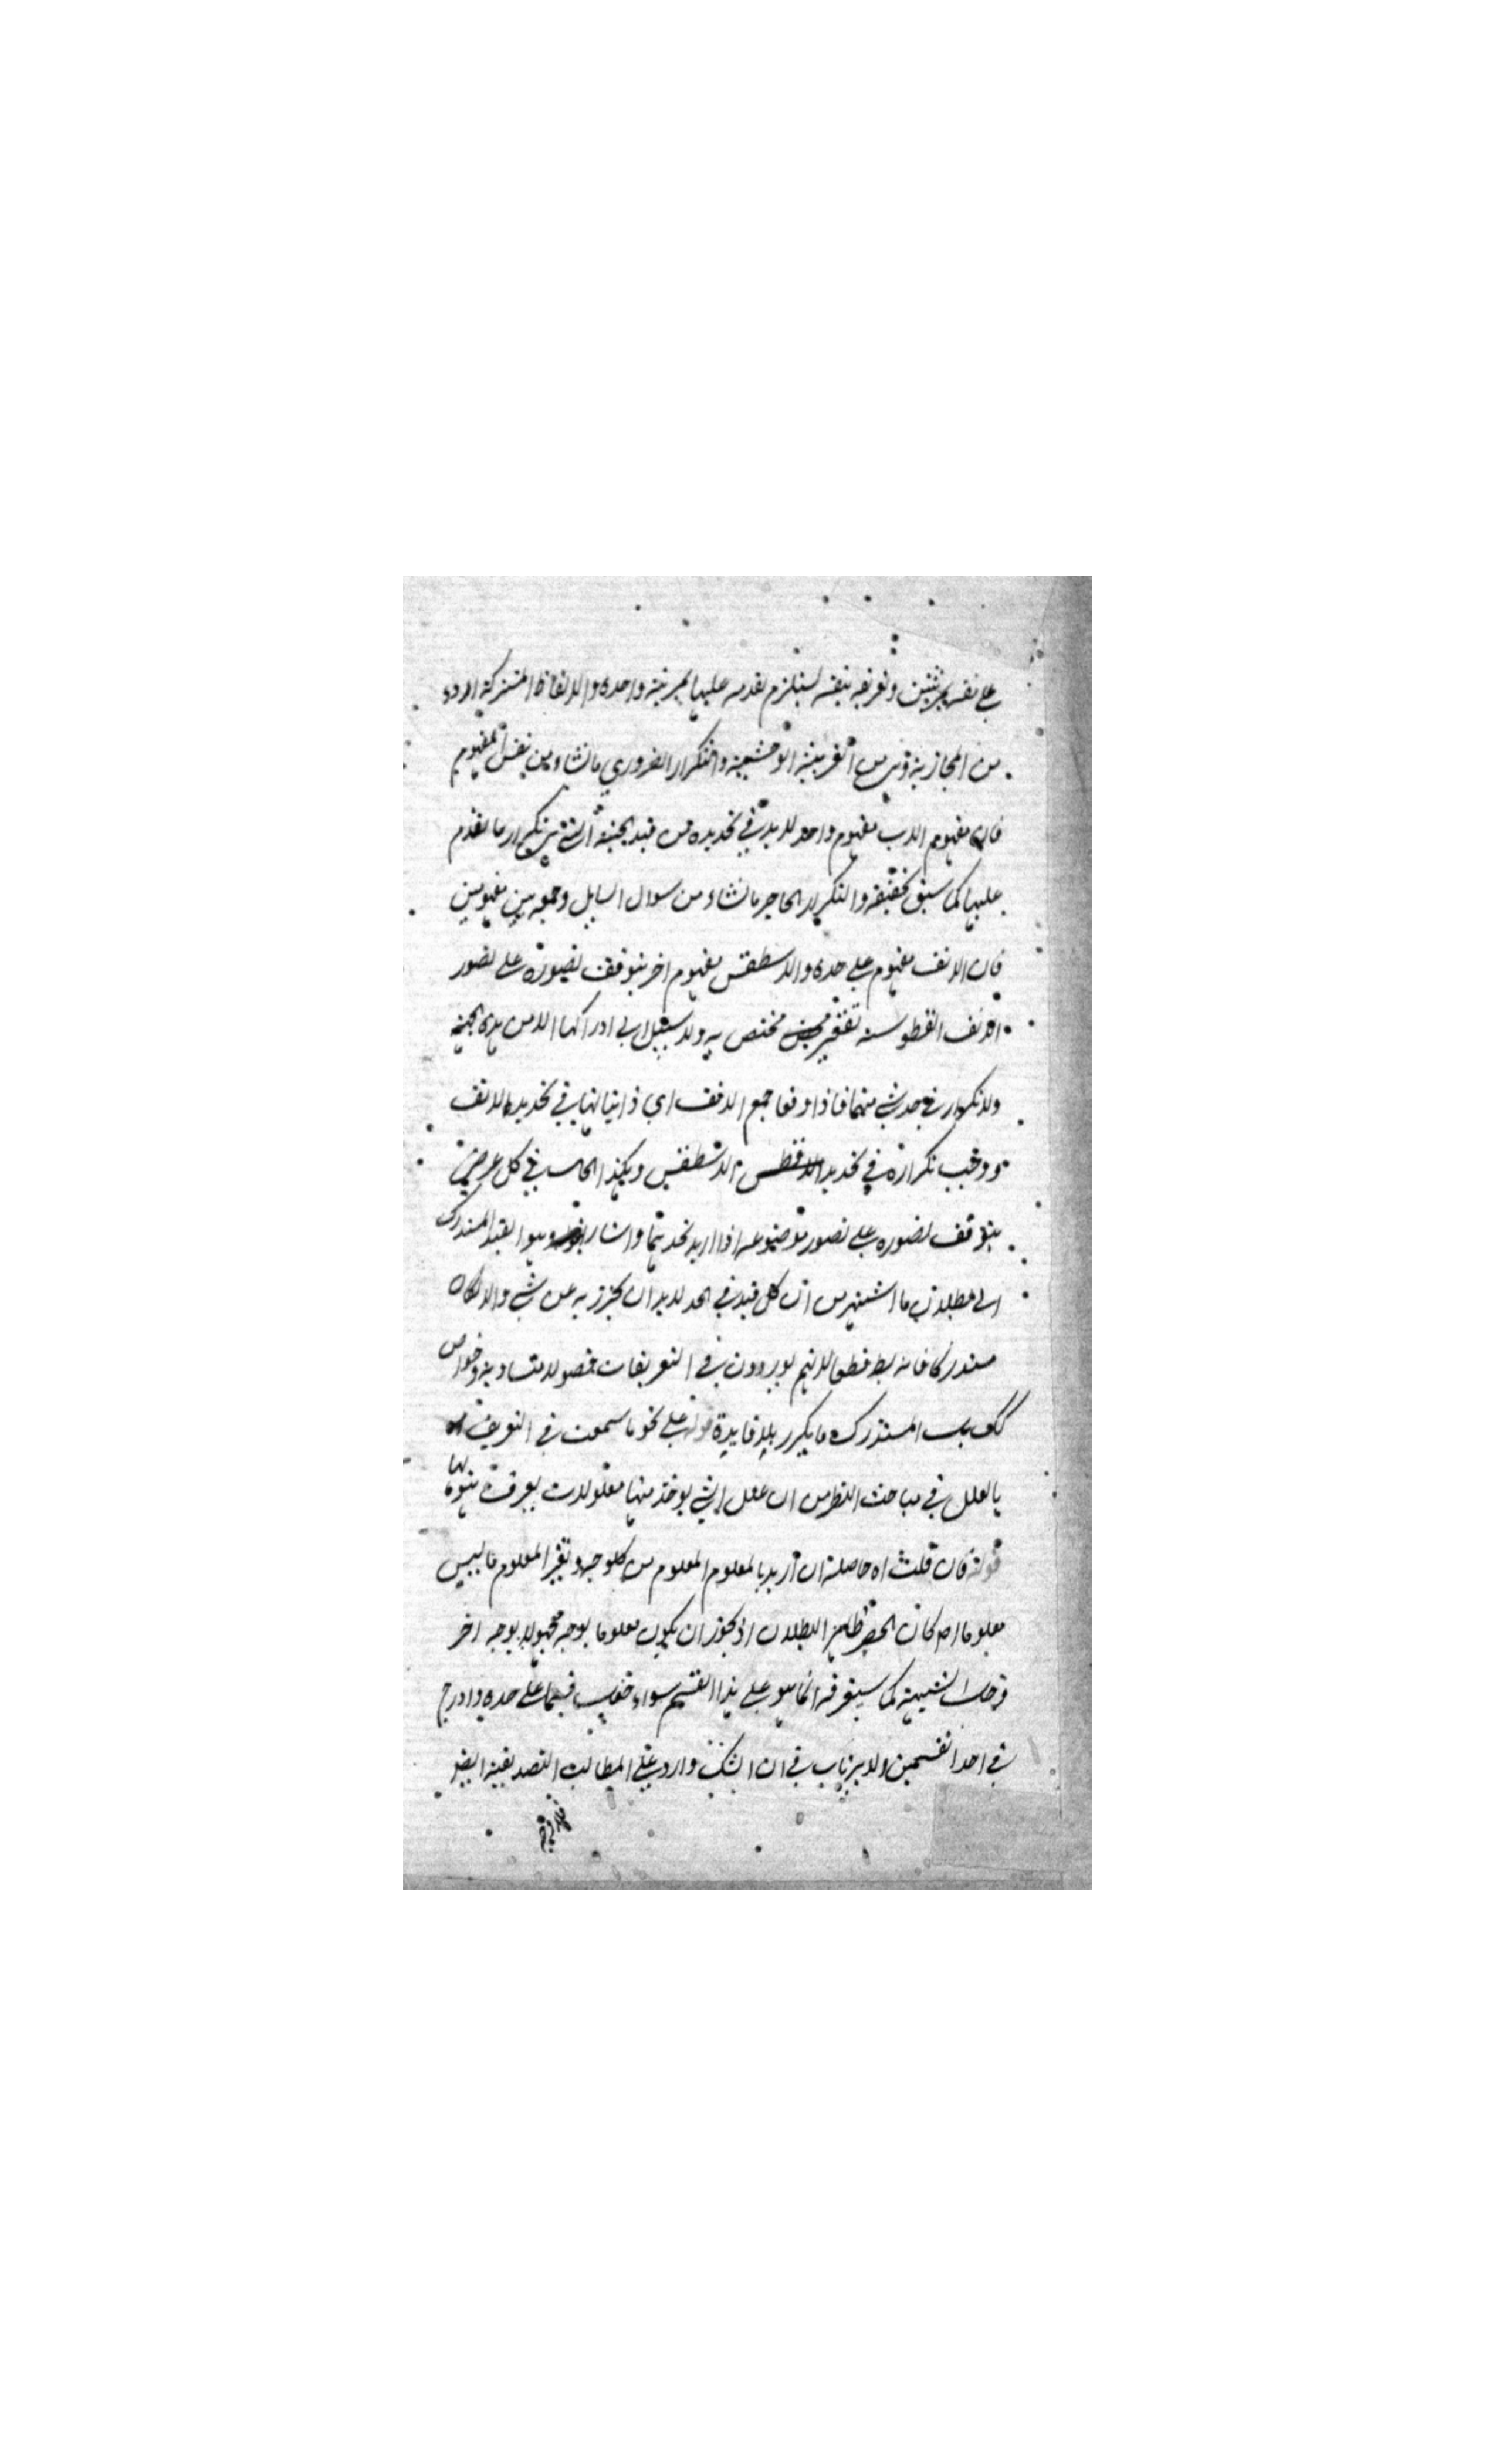 على نفسه بمرتبتين وتعريفه بنفسه يستلزم تقدمه عليها بمرتبة واحدة والالفاظ المشتركة اردء
من المجازية وهي من الغريبة الوحشية والتكرار الضروري ما نشاء من نفس المفهوم
فان مفهوم الاب مفهوم واحد لابد في تحديده من قيد الحيثية التي هي تكرار ما تقدم
عليها كما سبق تحقيقه والتكرار الحاجي ما نشاء من سوال السايل وجمعه بين مفهومين
فان الانف مفهوم على حده والافطس مفهوم اخر يتوقف تصوره على تصور
الانف الفطوسة تقعير مختص به ولا سبيل الى ادراكها الا من هذه الحيثية
ولا تكرار في حد شي منهما فاذا وقعا جمع الانف اي ذاتياتها في تحديد الانف
ووجب تكراره في تحديد الافطس وهكذا الحال في كل عرضي
يتوقف تصوره على تصور موضوعه اذا اريد تحديدهما واشار بقوله وهو القيد المستدرك
الى بطلان ما اشتهر من ان كل قيد في الحد لابد ان يحترز به عن شي والا لكان
مستدركا فانه بط قطعا لانهم يوردون في التعريفات فصولا متساوية وخواص
كك بل المستدرك ما يكرر بلا فايدة قوله على نحو ما سمعت في التعريف
بالعلل في مباحث النظر من ان علل الشي يوخذ منها مقولات يعرف بها
قوله فان قلت اه حاصله ان اريد بالمعلوم المعلوم من كل وجه وبغير المعلوم ما ليس
معلوما اصلا كان الحصر ظاهر البطلان اذ يجوز ان يكون معلوما بوجه مجهولا بوجه اخر
وحل الشبهة كما ستعرفه انما هو على هذا القسم سواء جعل قسما على حده او ادرج
في احد القسمين ولا يرتاب في ان الشك وارد على المطالب التصديقية ايضا